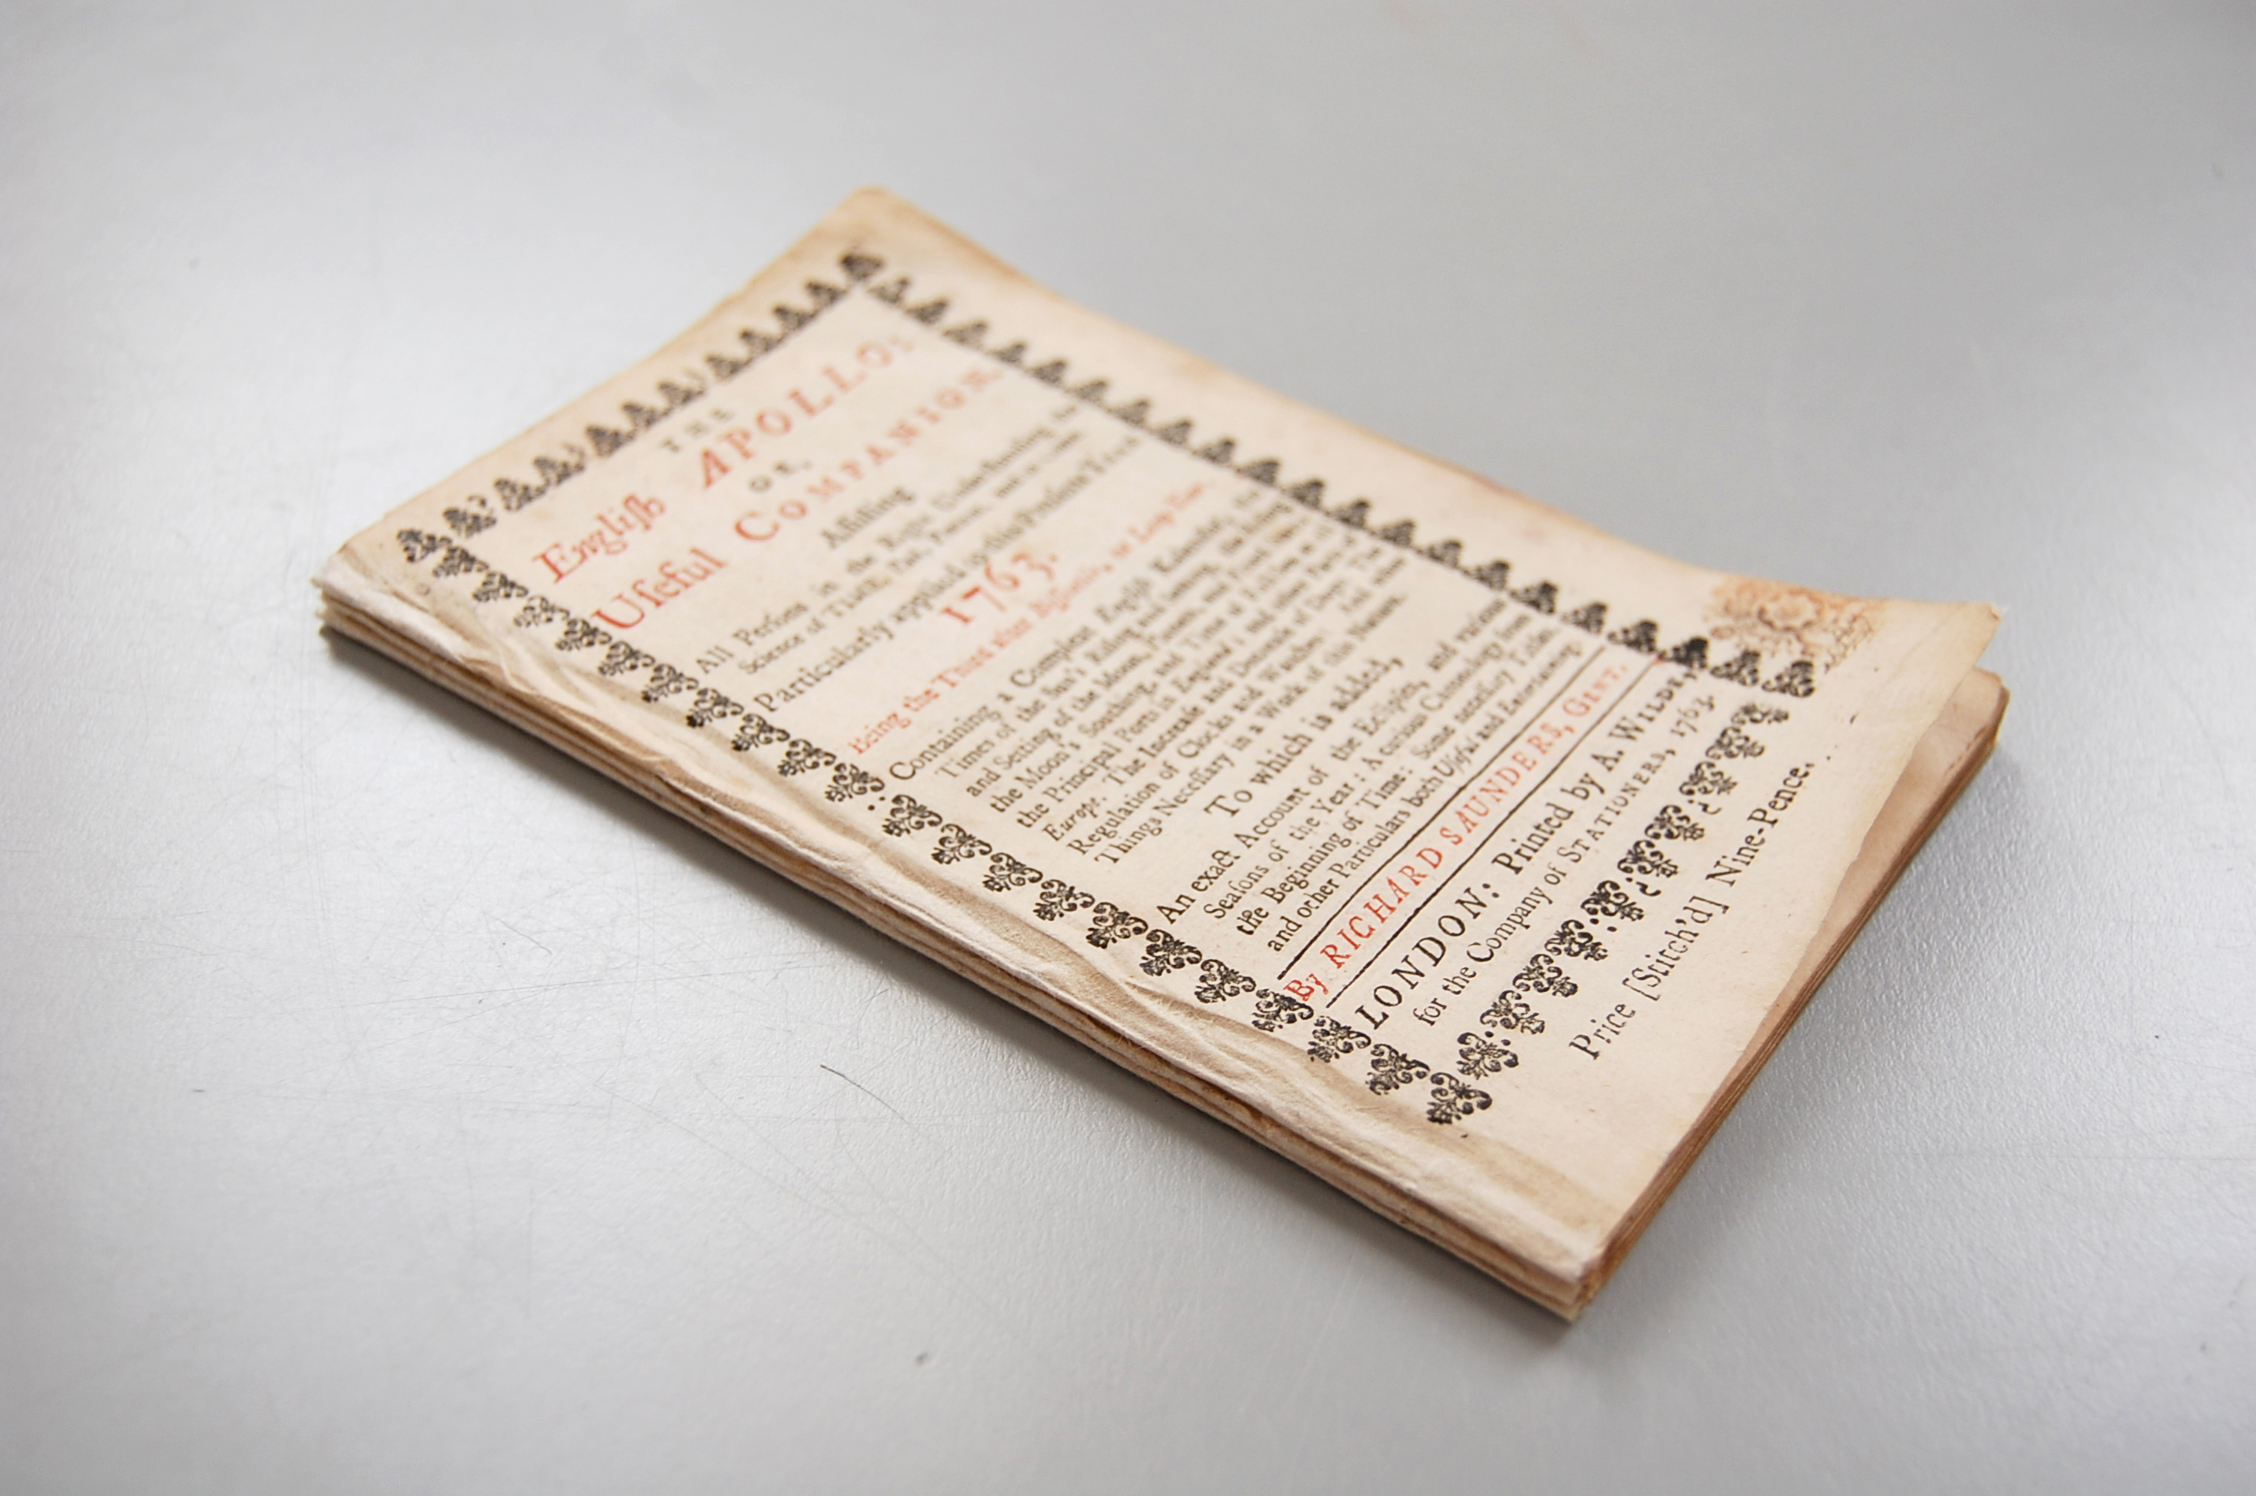 THE
Engliſh APOLLO:
OR,
Uſeful COMPANION.
Aſſiſting
All Perſons in the Right Underſtanding the
Science of TIME, Paſt, Preſent, and to Come.
Particularly applied to this Preſent Year
1763.
Being the Third after Biſſextile, or Leap Year.
Containing a Complete Engliſh Kalendar, the
Times of the Sun's Riſing and Setting, the Riſing
and Setting of the Moon, Planets, and Fixed Stars,
the Moon's Southing, and Time of Full Sea at
the Principal Ports in England and other Parts of
Europe. The Increaſe and Decreaſe of Days. The
Regulation of Clocks and Watches. And other
Things Neceſſary in a Work of this Nature.
To which is added,
An exact Account of the Eclipſes, and various
Seaſons of the Year: A curious Chronology from
the Beginning of Time: Some neceſſary Tables,
and other Particulars both Uſeful and Entertaining.
By RICHARD SAUNDERS, GENT.
LONDON: Printed by A. WILDE,
for the Company of STATIONERS, 1763.
Price [Stitch'd] Nine-Pence.